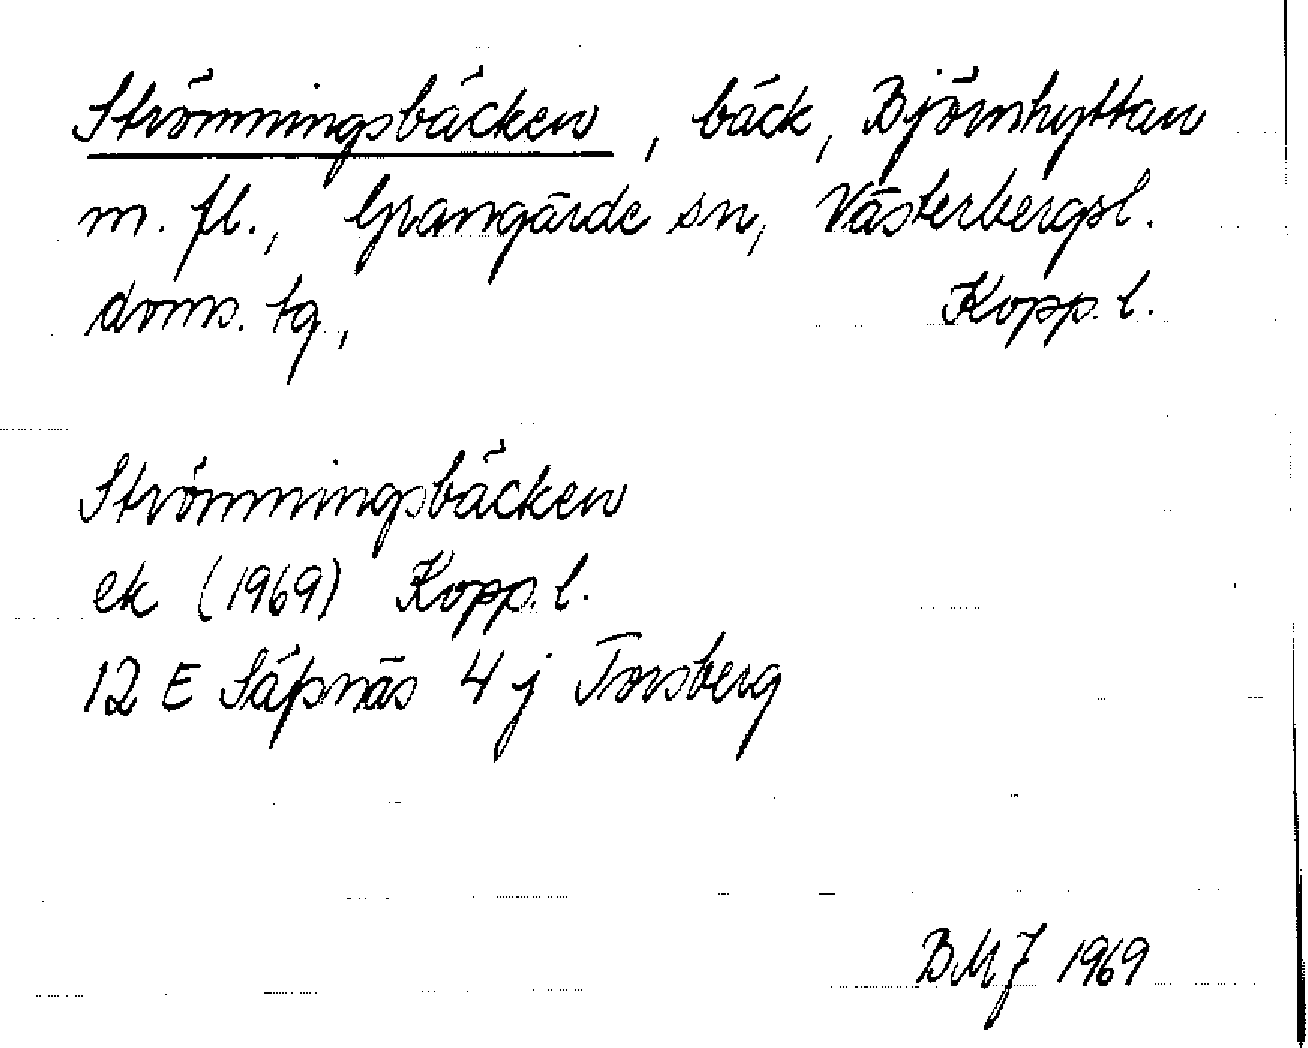 Strömningsbäcken, bäck, Björnhyttan
m. fl., Grangärde sn, Västerbergsl.
doms. tg, Kopp. l.
Strömningsbäcken
ek (1969) Kopp. l.
12 E Säfsnäs 4 j Torsberg
BMJ 1969